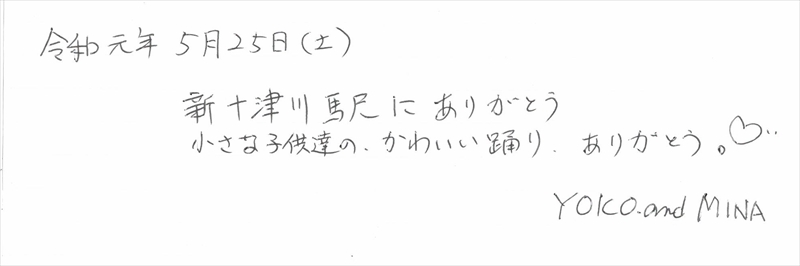 令和元年 5月25日(土)
新十津川馬尺にありがとう
小さな子供達の、かわいい踊り、ありがとう。♡
YOKO.and MINA